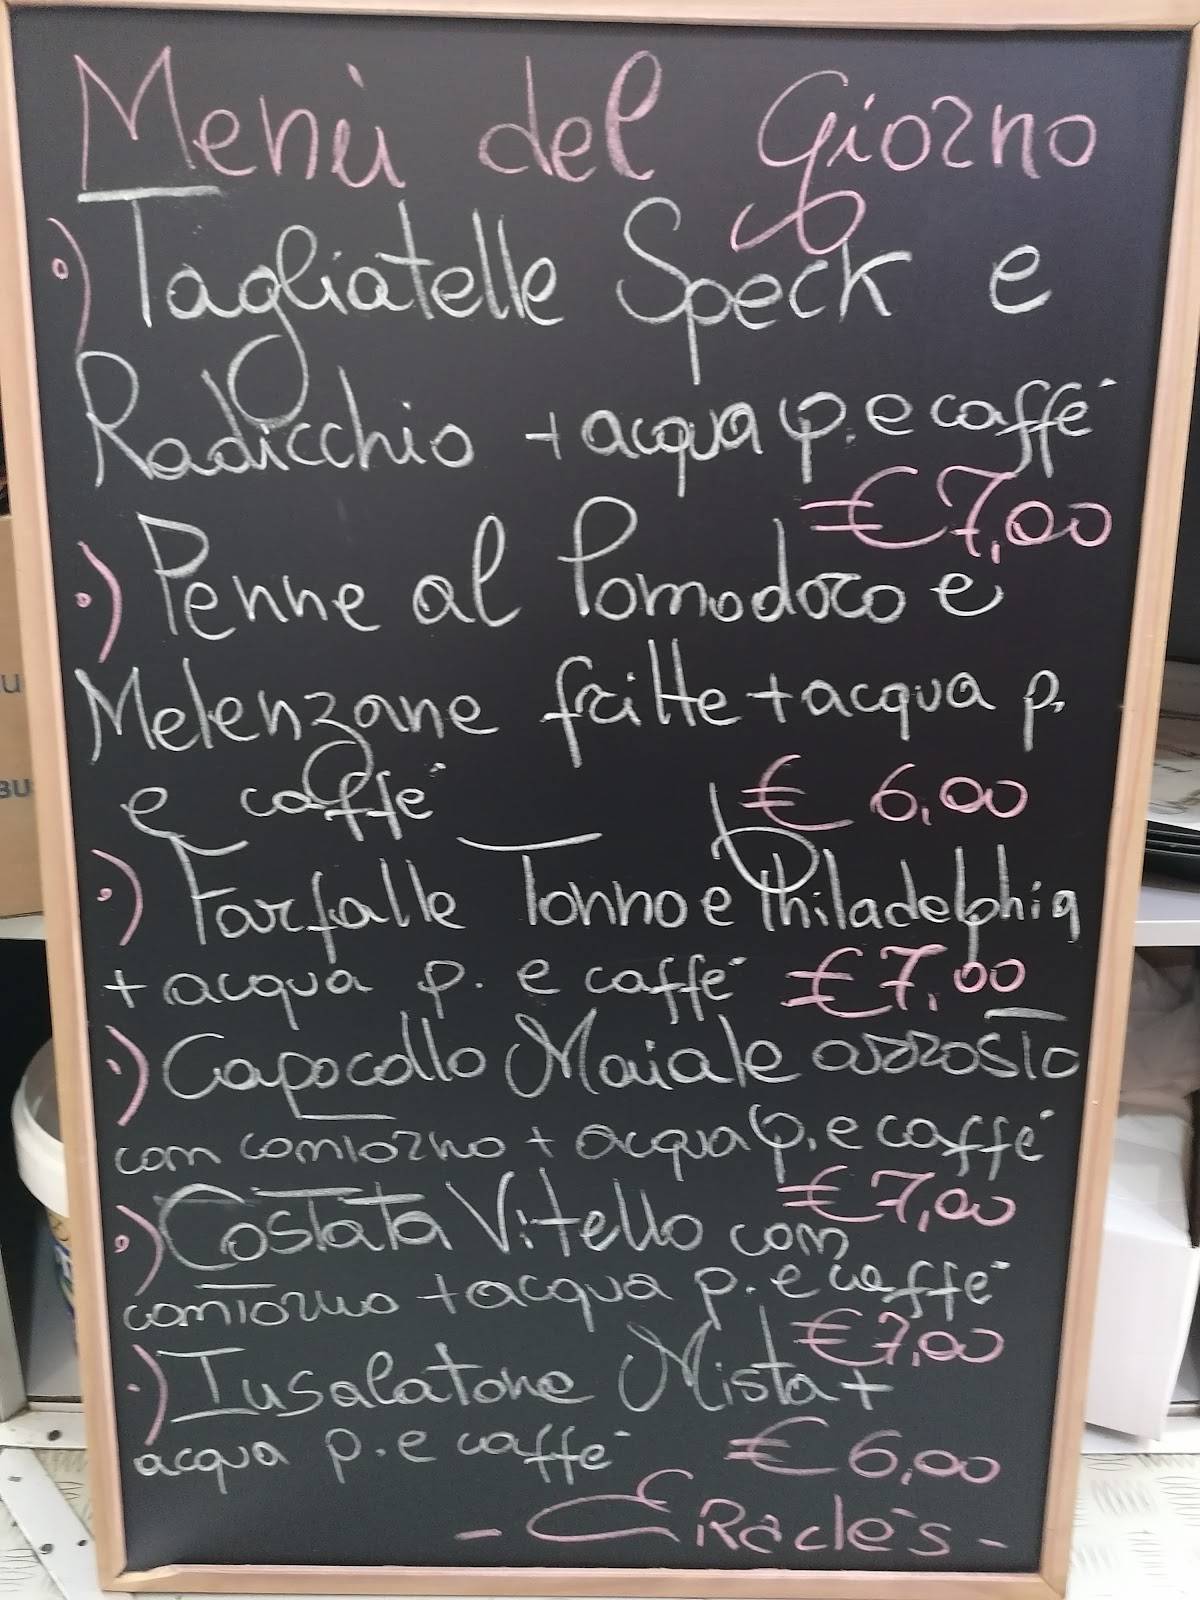 Menù del Giorno
•) Tagliatelle Speck e
Radicchio + acqua p. e caffè
€ 7,00
•) Penne al Pomodoro e
Melenzane fritte + acqua p.
e caffè € 6,00
•) Farfalle Tonno e Philadelphia
+ acqua p. e caffè € 7,00
•) Capocollo Maiale arrosto
con contorno + acqua p. e caffè
€ 7,00
•) Costata Vitello con
contorno + acqua p. e caffè
€ 7,00
•) Insalatone Mista +
acqua p. e caffè € 6,00
- Eracle's -
BUS